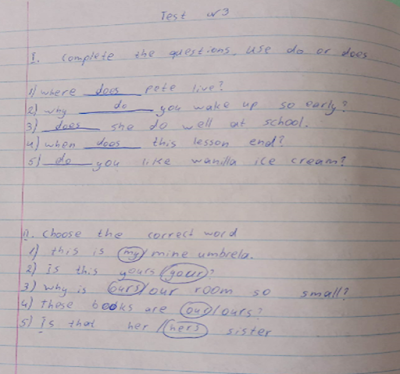 Test N3
I. Complete the questions. Use do or does
1) where does pete live?
2) why do you wake up so early?
3) does she do well at school.
4) when does this lesson end?
5) do you like wanilla ice cream?
II. choose the correct word
1) this is my/mine umbrela.
2) Is this yours/your?
3) why is ours/our room so small?
4) These books are our/ours?
5) Is that her/hers sister